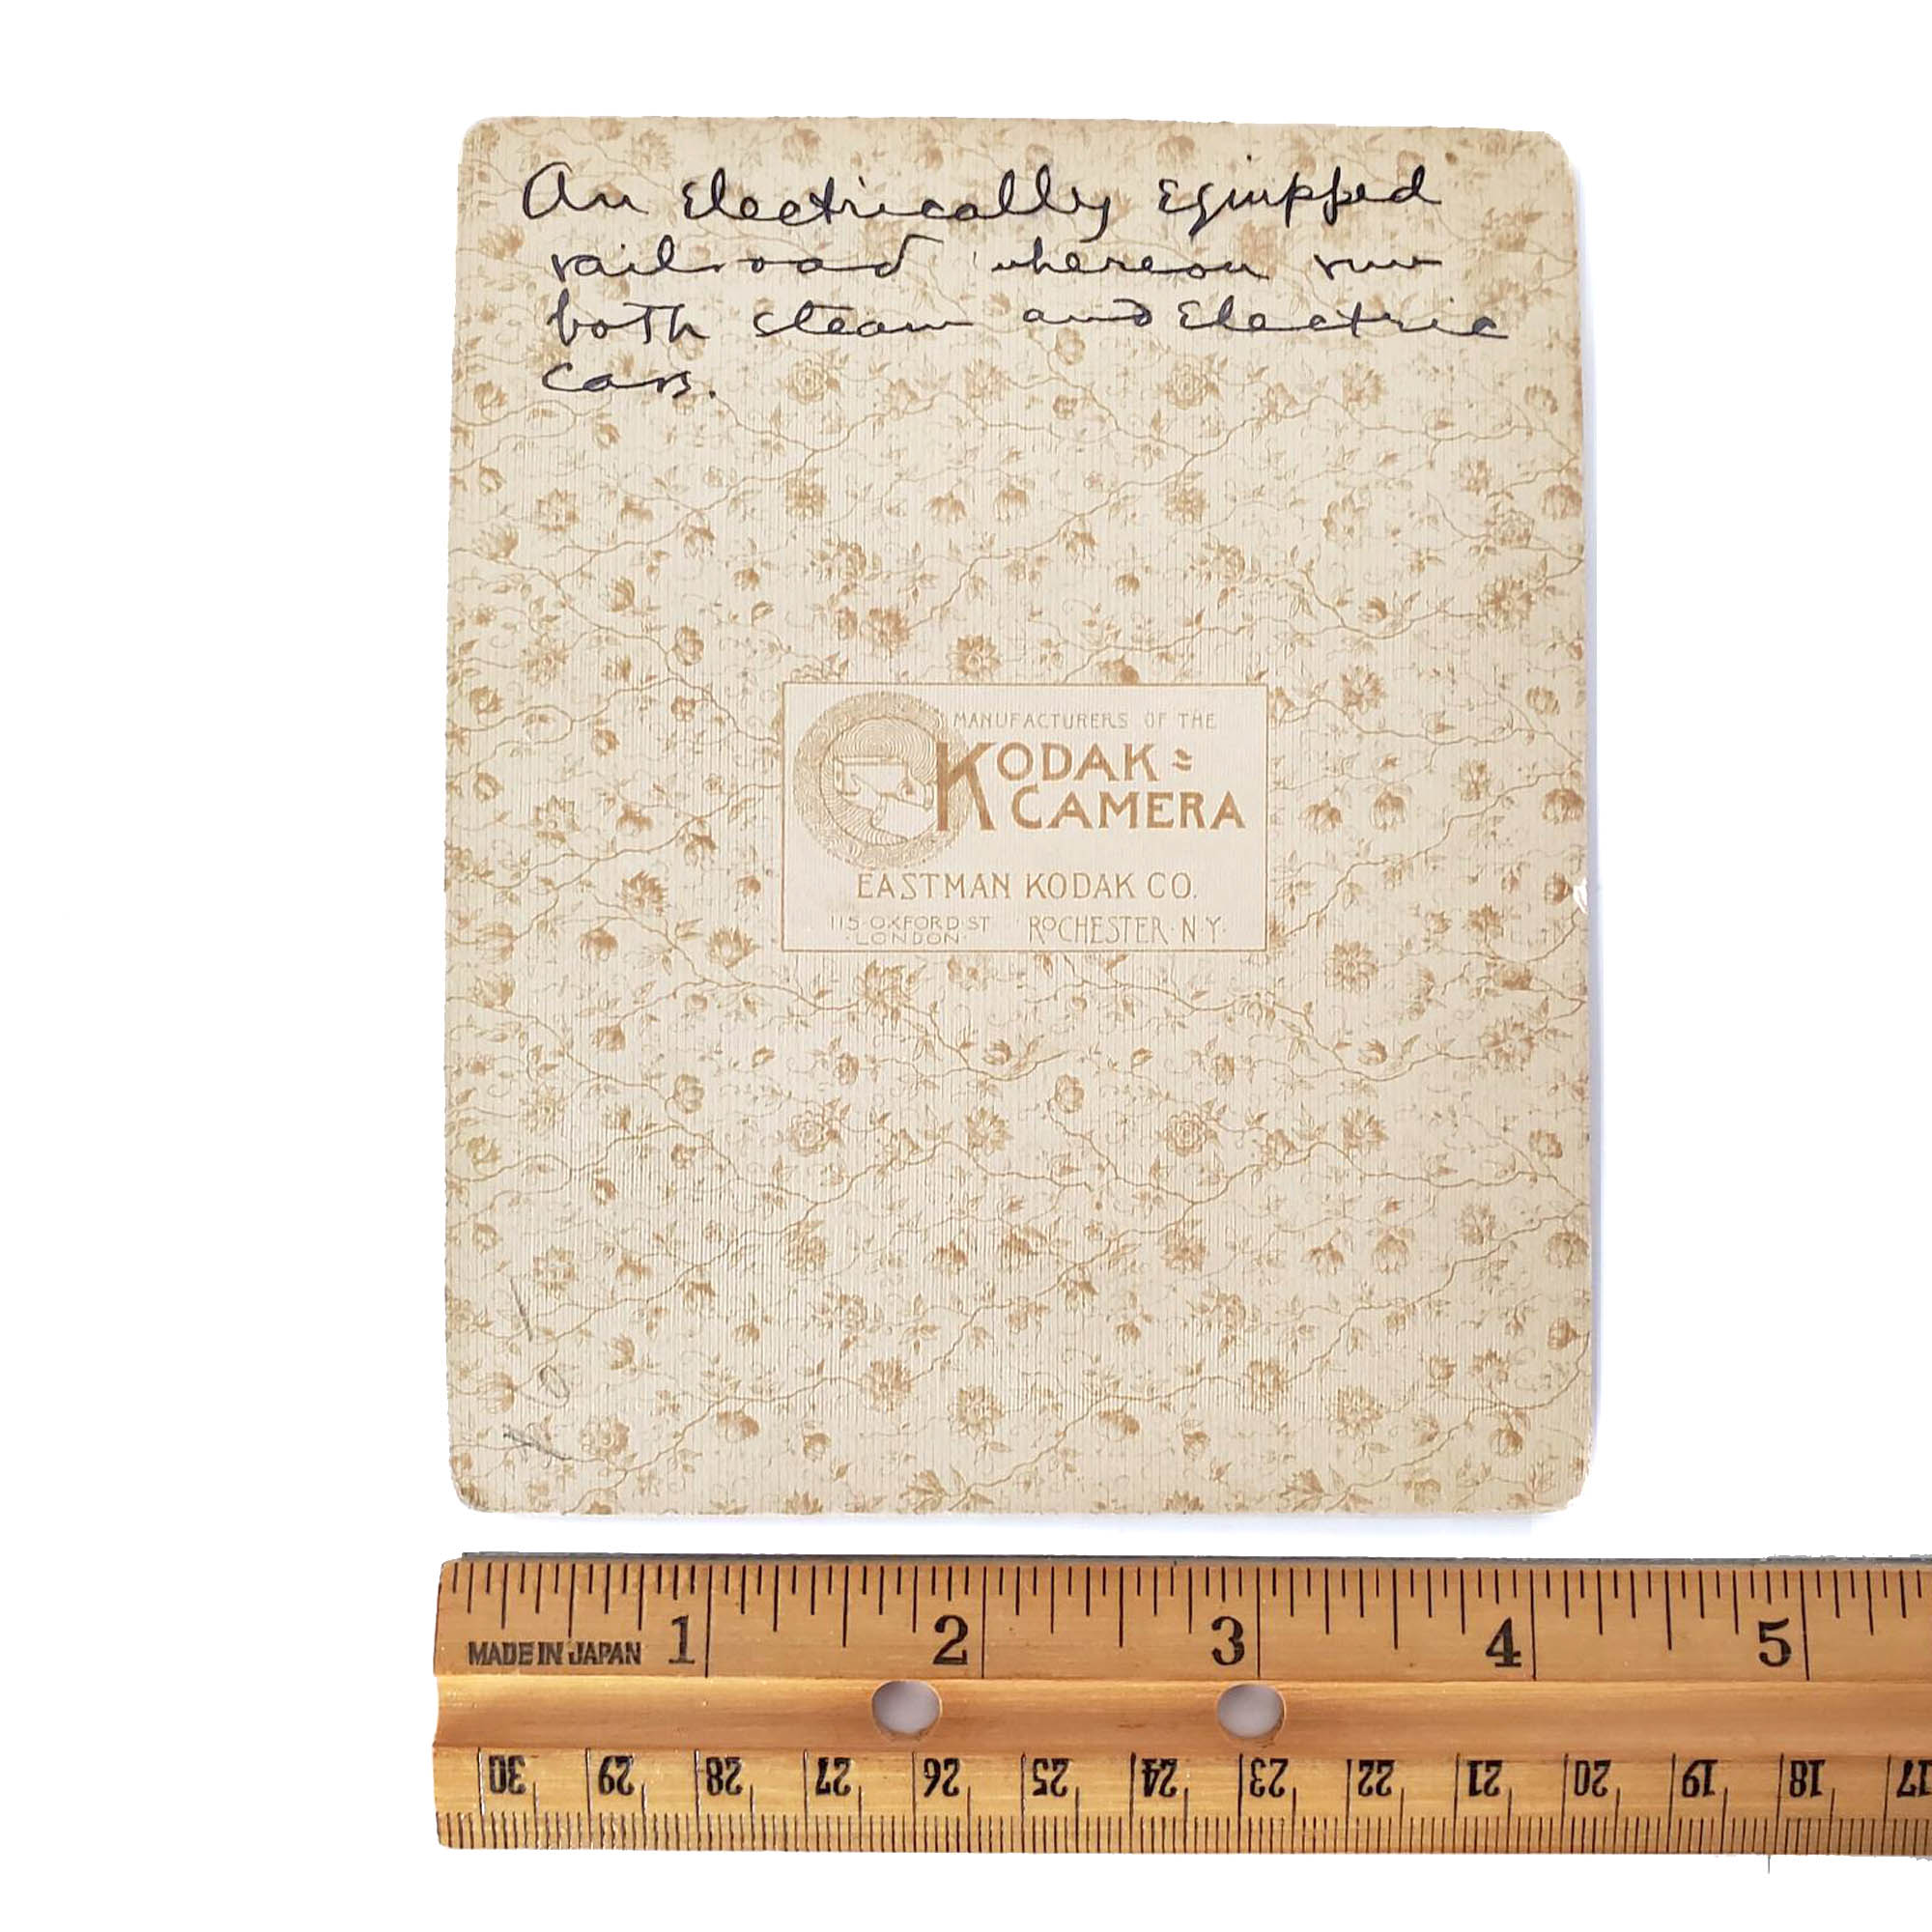 An Electrically Equipped
railroad whereon run
both steam and Electric
cars.
MANUFACTURERS OF THE
KODAK
CAMERA
EASTMAN KODAK CO.
115·OXFORD·ST
·LONDON·
ROCHESTER·N·Y·
1 2 3 4 5
MADE IN JAPAN
30 29 28 27 26 25 24 23 22 21 20 19 18 17